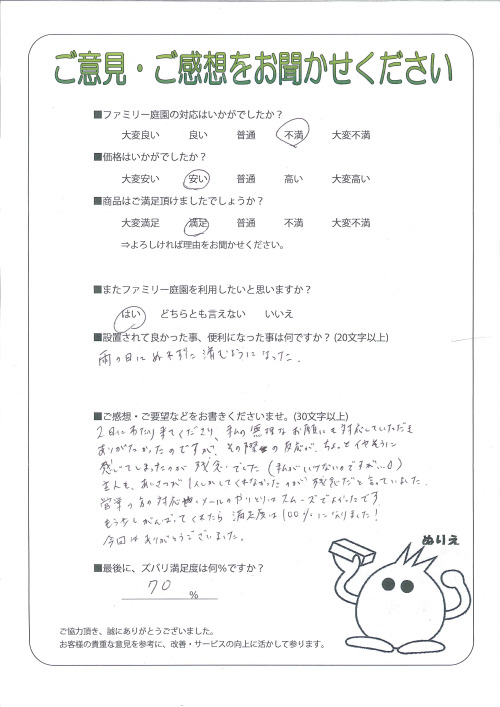 ご意見・ご感想をお聞かせください
■ファミリー庭園の対応はいかがでしたか？
大変良い 良い 普通 不満 大変不満
■価格はいかがでしたか？
大変安い 安い 普通 高い 大変高い
■商品はご満足頂けましたでしょうか？
大変満足 満足 普通 不満 大変不満
⇒よろしければ理由をお聞かせください。
■またファミリー庭園を利用したいと思いますか？
はい どちらとも言えない いいえ
■設置されて良かった事、便利になった事は何ですか？(20文字以上)
雨の日にぬれずに済むようになった.
■ご感想・ご要望などをお書きくださいませ。(30文字以上)
2日にわたり来てくださり、私の無理なお願いにも対応していただき
ありがたかったのですが、その際の反応が、ちょっとイヤそうに
感じてしまったのが残念でした(私がいけないのですが…)
主人も、あいさつが1人しかしてくれなかったのが残念だと言っていました.
営業の方の対応やメールのやりとりはスムーズでよかったです
もう少しがんばってくれたら満足度は100%になりました!
今回はありがとうございました.
■最後に、ズバリ満足度は何%ですか？
70 %
ぬりえ
ご協力頂き、誠にありがとうございました。
お客様の貴重な意見を参考に、改善・サービスの向上に活かして参ります。